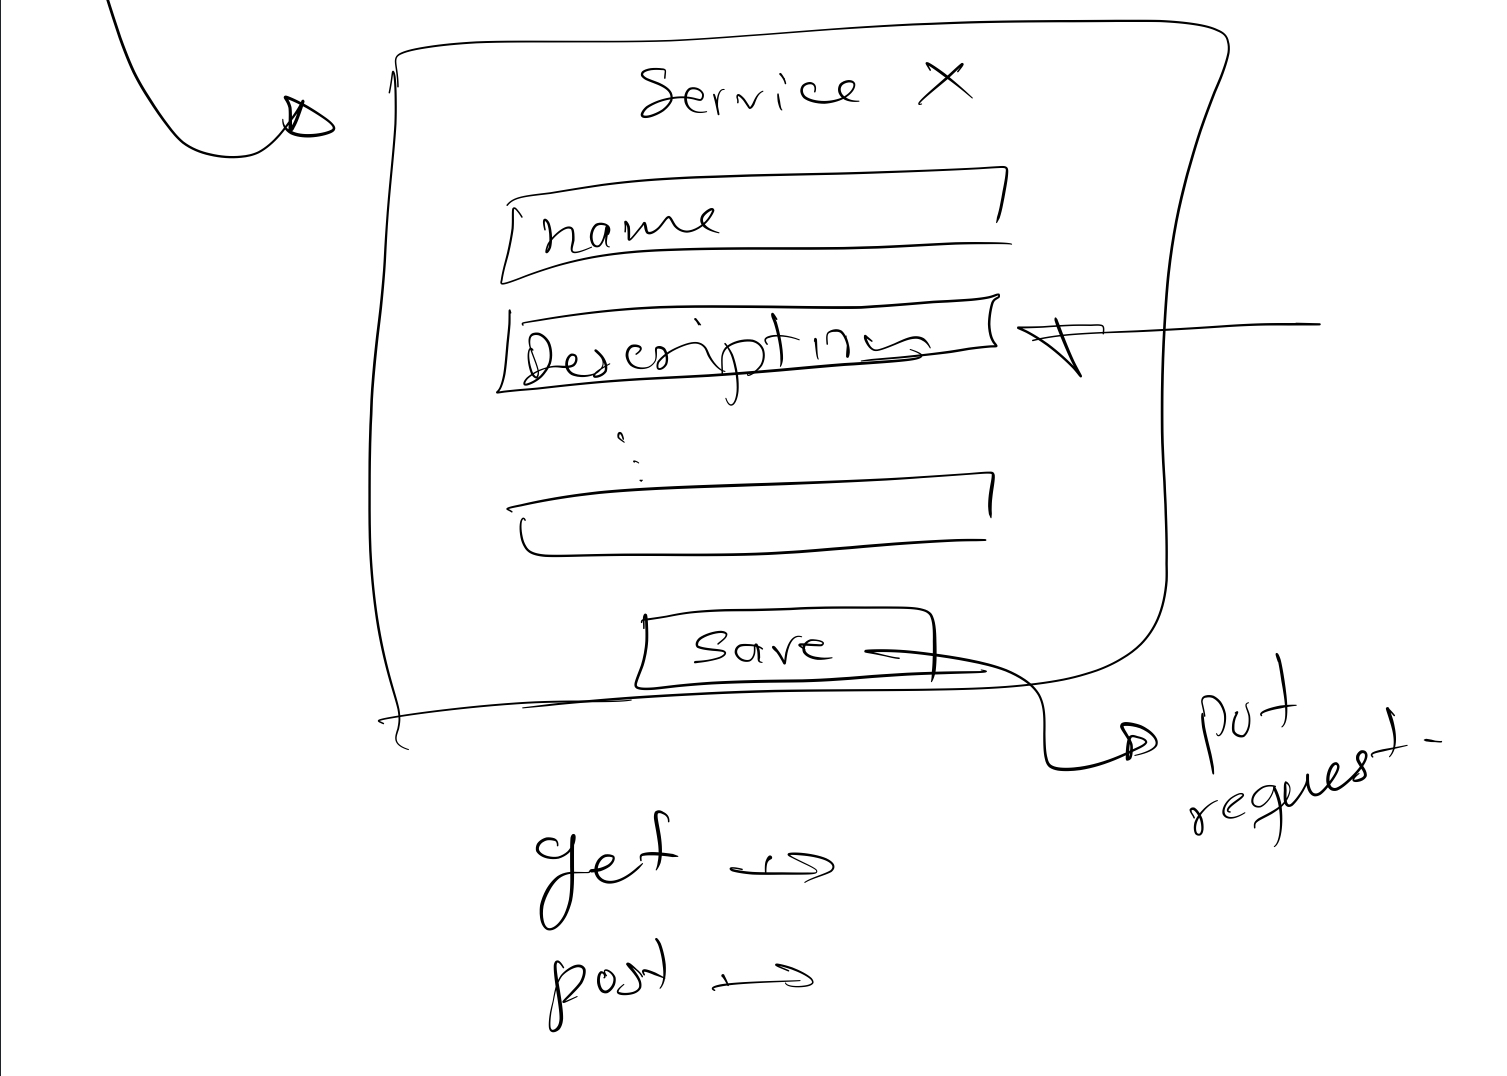 Service X
name
Description
save
put
request-
get →
post →